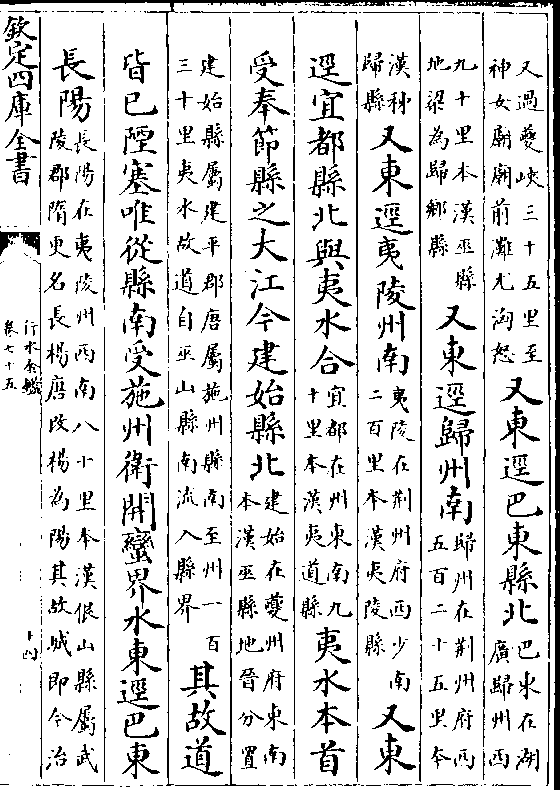 又過夔峽三十五里至神女廟廟前灘尤洶怒又東逕巴東縣北巴東在湖廣歸州西
九十里本漢巫縣地梁為歸鄉縣又東逕歸州南歸州在荆州府西五百二十五里本
漢秭歸縣又東逕夷陵州南夷陵在荆州府西少南二百里本漢夷陵縣又東
逕宜都縣北與夷水合宜都在州東南九十里本漢夷道縣夷水本首
受奉節縣之大江今建始縣北建始在夔州府東南本漢巫縣地晉分置
建始縣屬建平郡唐屬施州縣南至州一百三十里夷水故道自巫山縣南流入縣界其故道
皆已陻塞唯從縣南受施州衛開蠻界水東逕巴東
長陽長陽在夷陵州西南八十里本漢佷山縣屬武陵郡隋更名長楊唐改楊為陽其故城即今治
欽定四庫全書
行水金鑑
卷七十五
十四